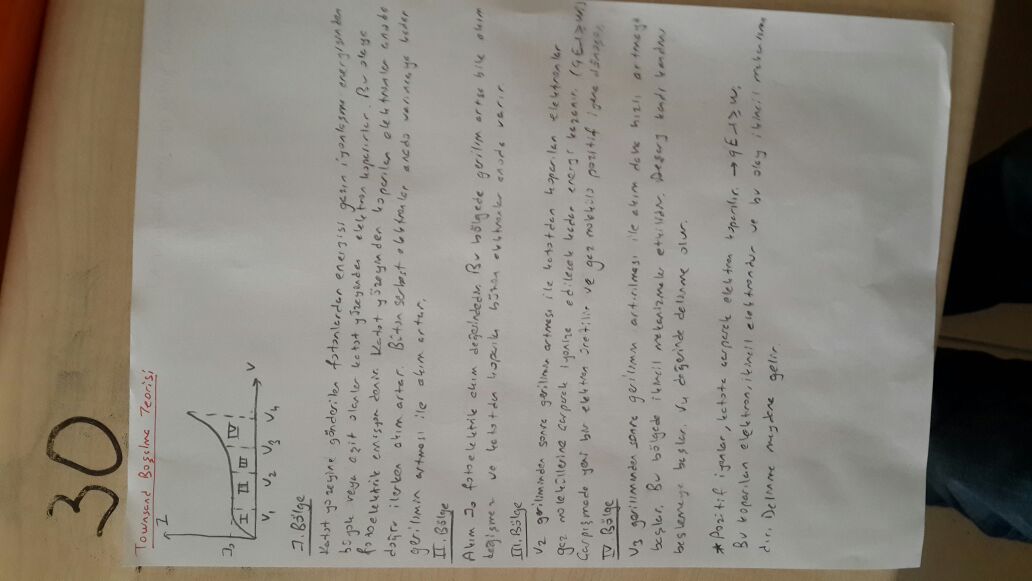 30
Townsend Boşalma Teorisi
I
I₀
I II III IV
V₁ V₂ V₃ V₄ V
I. Bölge
Katot yüzeyine gönderilen fotonlardan enerjisi gazın iyonlaşma enerjisinden
büyük veya eşit olanlar katot yüzeyinden elektron koparırlar. Bu olaya
fotoelektrik emisyon denir. Katot yüzeyinden koparılan elektronlar anoda
doğru ilerken akım artar. Bütün serbest elektronlar anoda varıncaya kadar
gerilimin artması ile akım artar.
II. Bölge
Akım I₀ fotoelektrik akım değerindedir. Bu bölgede gerilim artsa bile akım
değişmez ve katotdan koparılan bütün elektronlar anoda varır.
III. Bölge
V₂ geriliminden sonra gerilimin artması ile katotdan koparılan elektronlar
gaz moleküllerine çarparak iyonize edilecek kadar enerji kazanır. (qEλ≥wᵢ)
Çarpışmada yeni bir elektron üretilir ve gaz molekülü pozitif iyona dönüşür.
IV. Bölge
V₃ geriliminden sonra gerilimin artırılması ile akım daha hızlı artmaya
başlar. Bu bölgede ikincil mekanizmalar etkilidir. Deşarj kendi kendini
beslemeye başlar. V₄ değerinde delinme olur.
* Pozitif iyonlar, katota çarparak elektron koparılır. → qEλ≥wᵢ
Bu koparılan elektron, ikincil elektrondur ve bu olay ikincil mekanizma
dır. Delinme meydana gelir.